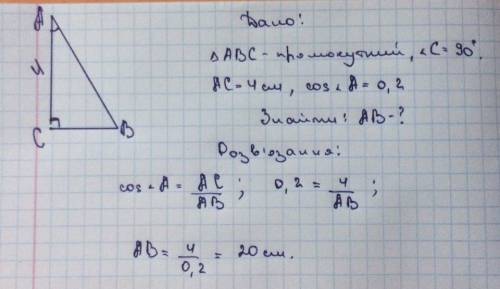 A
4
C
B
Дано:
△ABC - прямокутний, ∠C = 90°.
AC = 4 см, cos∠A = 0,2
Знайти: AB - ?
Розв'язання:
cos∠A = AC/AB ; 0,2 = 4/AB ;
AB = 4/0,2 = 20 см.